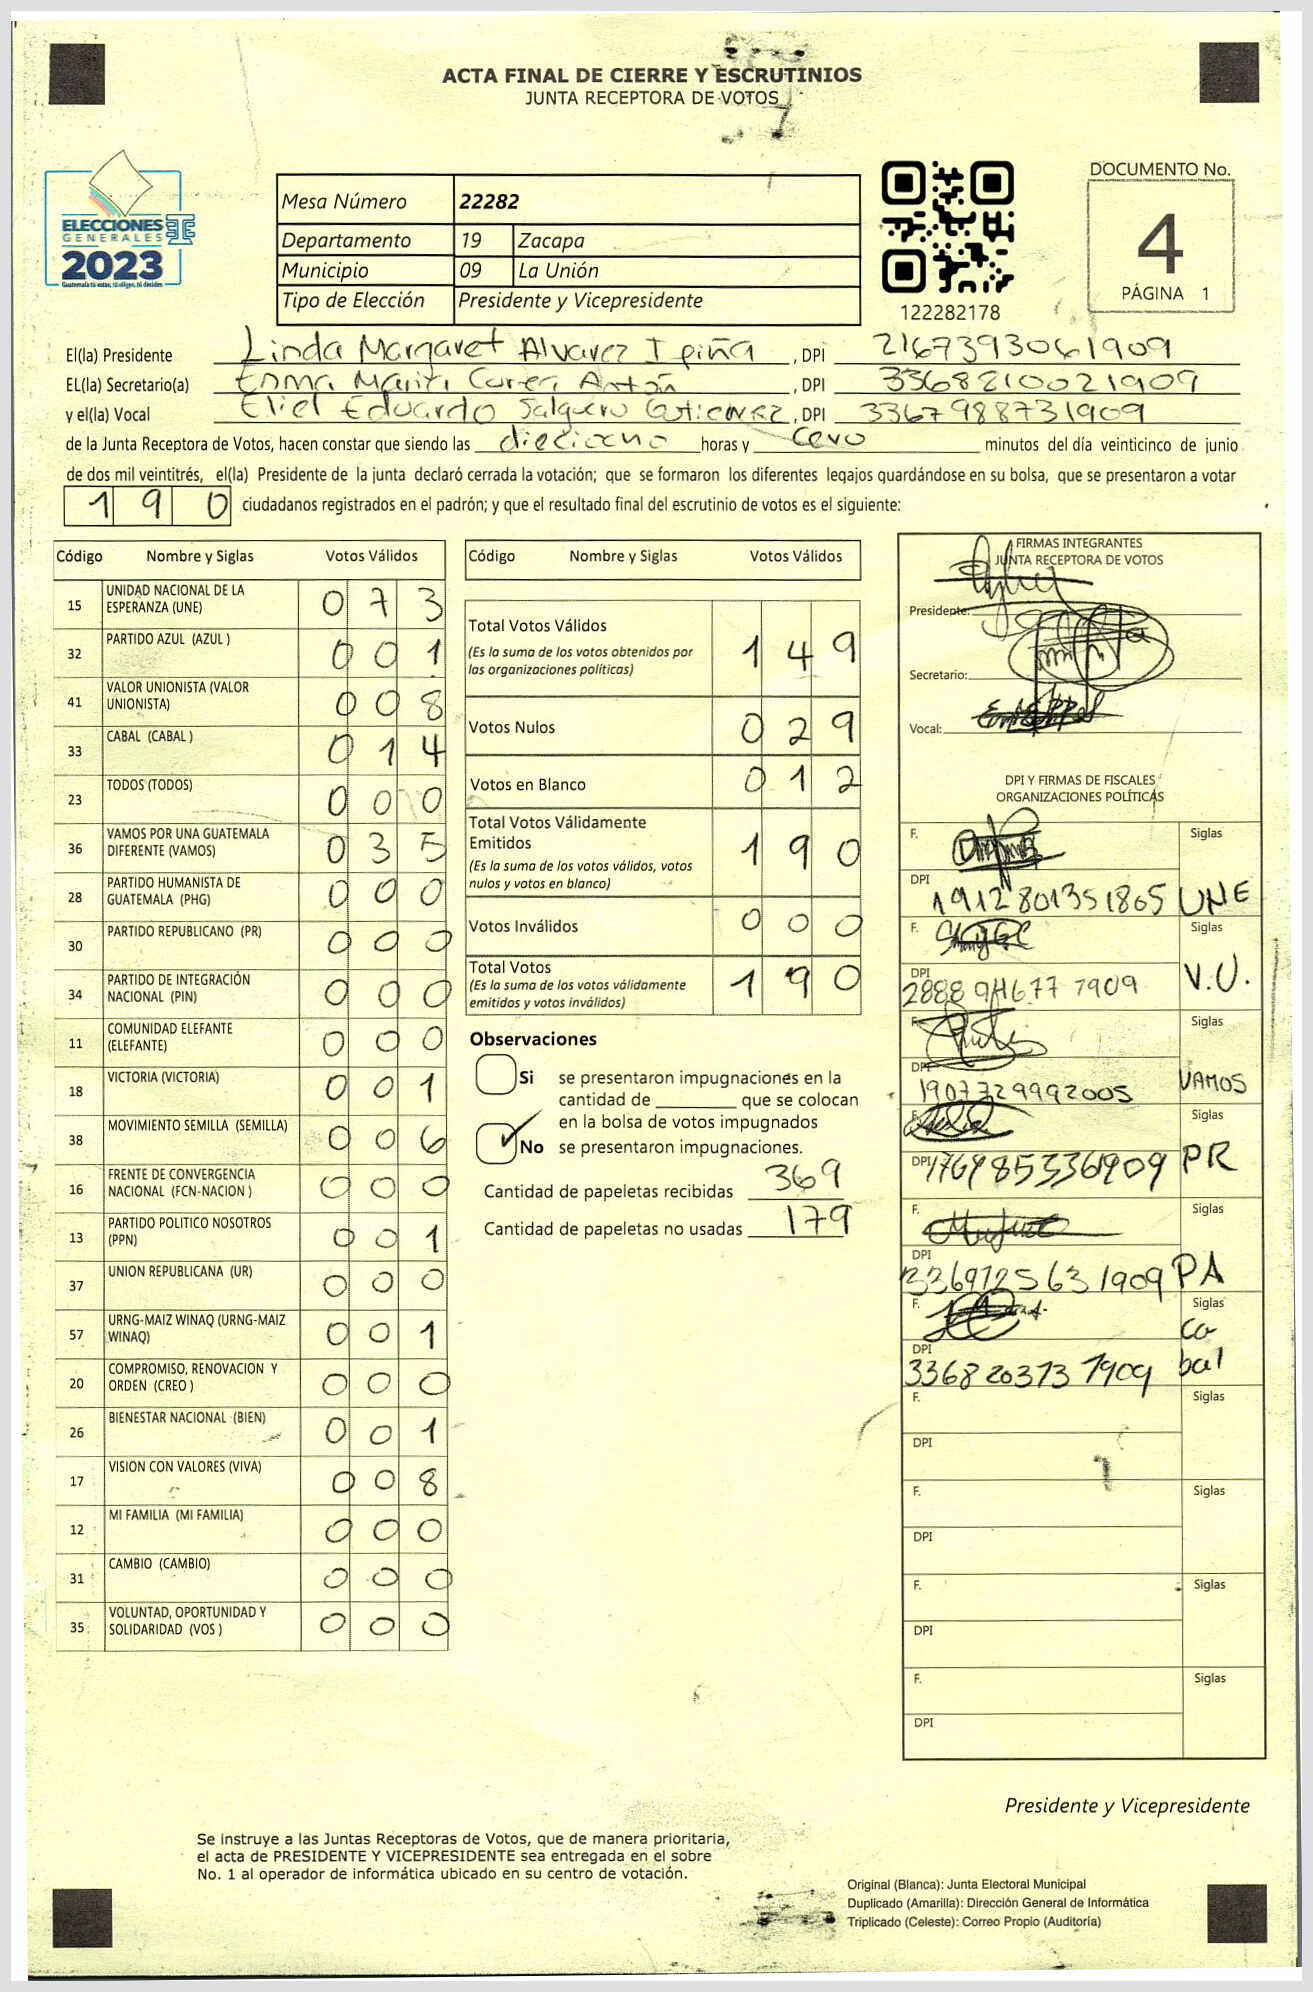 ACTA FINAL DE CIERRE Y ESCRUTINIOS
JUNTA RECEPTORA DE VOTOS
ELECCIONES
GENERALES
2023
Guatemala tú votas, tú eliges, tú decides
Mesa Número 22282
Departamento 19 Zacapa
Municipio 09 La Unión
Tipo de Elección Presidente y Vicepresidente
122282178
DOCUMENTO No.
4
PÁGINA 1
El(la) Presidente Linda Margaret Alvarez Ipiña, DPI 2167393061909
EL(la) Secretario(a) Antón, DPI 3368210021909
y el(la) Vocal Eliel Eduardo Salguero Gutierrez, DPI 3367988731909
de la Junta Receptora de Votos, hacen constar que siendo las dieciocho horas y cero minutos del día veinticinco de junio
de dos mil veintitrés, el(la) Presidente de la junta declaró cerrada la votación; que se formaron los diferentes legajos guardándose en su bolsa, que se presentaron a votar
190 ciudadanos registrados en el padrón; y que el resultado final del escrutinio de votos es el siguiente:
Código Nombre y Siglas Votos Válidos
15 UNIDAD NACIONAL DE LA ESPERANZA (UNE) 0 7 3
32 PARTIDO AZUL (AZUL ) 0 0 1
41 VALOR UNIONISTA (VALOR UNIONISTA) 0 0 8
33 CABAL (CABAL ) 0 1 4
23 TODOS (TODOS) 0 0 0
36 VAMOS POR UNA GUATEMALA DIFERENTE (VAMOS) 0 3 5
28 PARTIDO HUMANISTA DE GUATEMALA (PHG) 0 0 0
30 PARTIDO REPUBLICANO (PR) 0 0 0
34 PARTIDO DE INTEGRACIÓN NACIONAL (PIN) 0 0 0
11 COMUNIDAD ELEFANTE (ELEFANTE) 0 0 0
18 VICTORIA (VICTORIA) 0 0 1
38 MOVIMIENTO SEMILLA (SEMILLA) 0 0 6
16 FRENTE DE CONVERGENCIA NACIONAL (FCN-NACION ) 0 0 0
13 PARTIDO POLITICO NOSOTROS (PPN) 0 0 1
37 UNION REPUBLICANA (UR) 0 0 0
57 URNG-MAIZ WINAQ (URNG-MAIZ WINAQ) 0 0 1
20 COMPROMISO, RENOVACION Y ORDEN (CREO ) 0 0 0
26 BIENESTAR NACIONAL (BIEN) 0 0 1
17 VISION CON VALORES (VIVA) 0 0 8
12 MI FAMILIA (MI FAMILIA) 0 0 0
31 CAMBIO (CAMBIO) 0 0 0
35 VOLUNTAD, OPORTUNIDAD Y SOLIDARIDAD (VOS ) 0 0 0
Código Nombre y Siglas Votos Válidos
Total Votos Válidos 1 4 9
(Es la suma de los votos obtenidos por
las organizaciones políticas)
Votos Nulos 0 2 9
Votos en Blanco 0 1 2
Total Votos Válidamente
Emitidos 1 9 0
(Es la suma de los votos válidos, votos
nulos y votos en blanco)
Votos Inválidos 0 0 0
Total Votos 1 9 0
(Es la suma de los votos válidamente
emitidos y votos inválidos)
Observaciones
Si se presentaron impugnaciones en la
cantidad de ________ que se colocan
en la bolsa de votos impugnados
No se presentaron impugnaciones.
Cantidad de papeletas recibidas 369
Cantidad de papeletas no usadas 179
FIRMAS INTEGRANTES
JUNTA RECEPTORA DE VOTOS
Presidente:
Secretario:
Vocal:
DPI Y FIRMAS DE FISCALES
ORGANIZACIONES POLÍTICAS
F. Siglas
DPI 1912801351865 UNE
F. Siglas
DPI 1909 V.U.
F. Siglas
DPI 1907729992005 VAMOS
F. Siglas
DPI PR
F. Siglas
DPI 3369725631909 PA
F. Siglas
DPI 3368203731909 Cabal
F. Siglas
DPI
F. Siglas
DPI
F. Siglas
DPI
F. Siglas
DPI
Presidente y Vicepresidente
Se instruye a las Juntas Receptoras de Votos, que de manera prioritaria,
el acta de PRESIDENTE Y VICEPRESIDENTE sea entregada en el sobre
No. 1 al operador de informática ubicado en su centro de votación.
Original (Blanca): Junta Electoral Municipal
Duplicado (Amarilla): Dirección General de Informática
Triplicado (Celeste): Correo Propio (Auditoría)